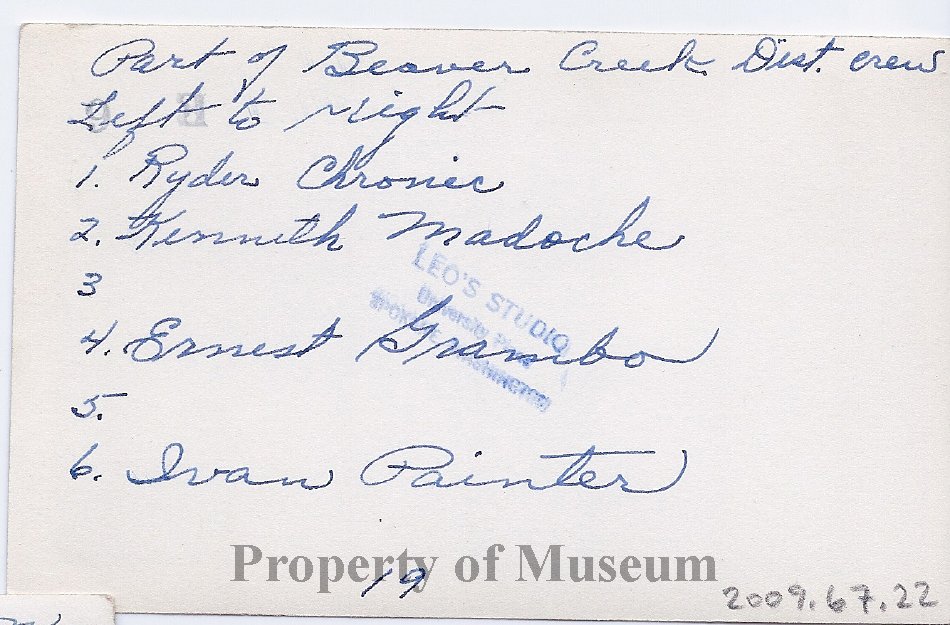 Part of Beaver Creek Dist. crew
Left to right
1. Ryder Chronic
2. Kenneth Madoche
3
4. Ernest Grambo
5.
6. Ivan Painter
LEO'S STUDIO
University Place
SPOKANE WASHINGTON
Property of Museum
19
2009.67.22